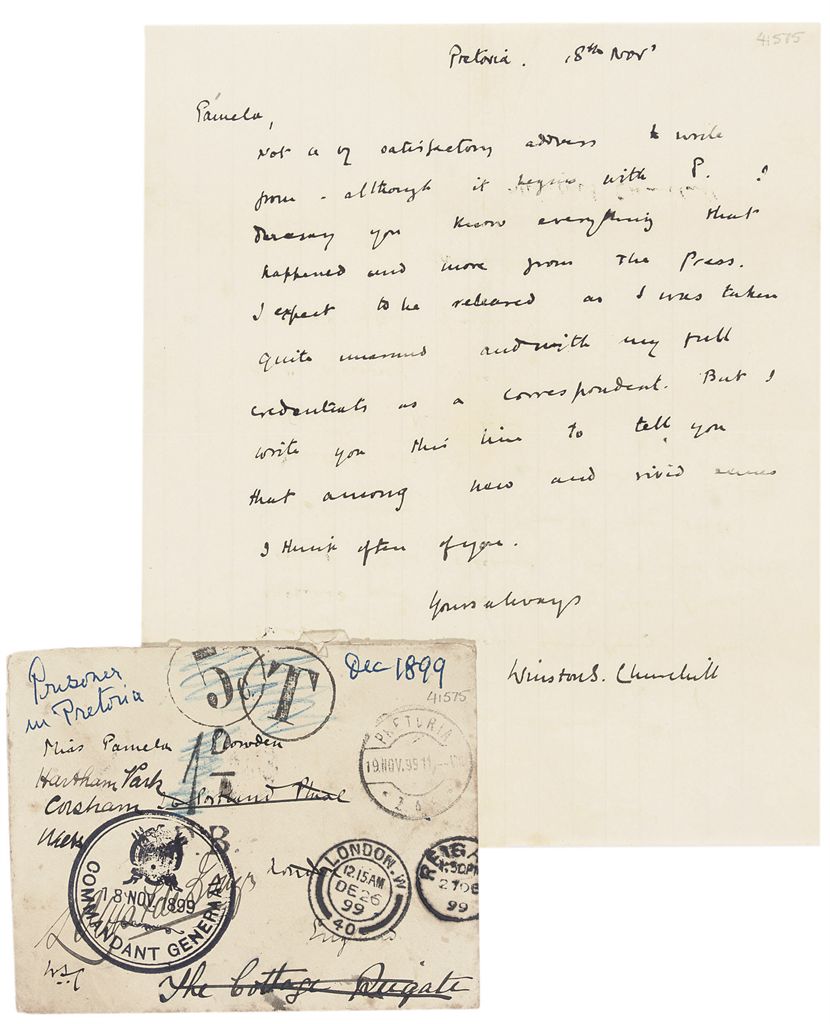 41575
Pretoria. 18th Nov'
Pamela,
Not a vy satisfactory address to write
from - although it begins with P. I
Daresay you know everything that
happened and more from the Press.
I expect to be released as I was taken
quite unarmed and with my full
credentials as a correspondent. But I
write you this line to tell you
that among new and vivid scenes
I think often of you.
Yours always
Winston S. Churchill
Prisoner
in Pretoria
5c T
Dec 1899
41575
Miss Pamela Plowden
Hartham Park
Corsham
PRETORIA
19.NOV.99
1D
COMMANDANT GENERAAL
18 NOV 1899
London
LONDON.W
12.15AM
DE 26
99
40
REIGA
27 DE
99
WSC
The Cottage Reigate